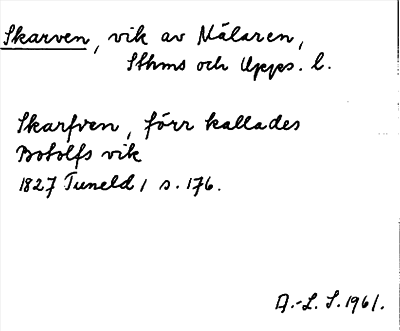 Skarven, vik av Mälaren,
Sthms och Upps. l.
Skarfven, förr kallades
Botolfs vik
1827 Tuneld 1 s. 176.
A.-L. S. 1961.